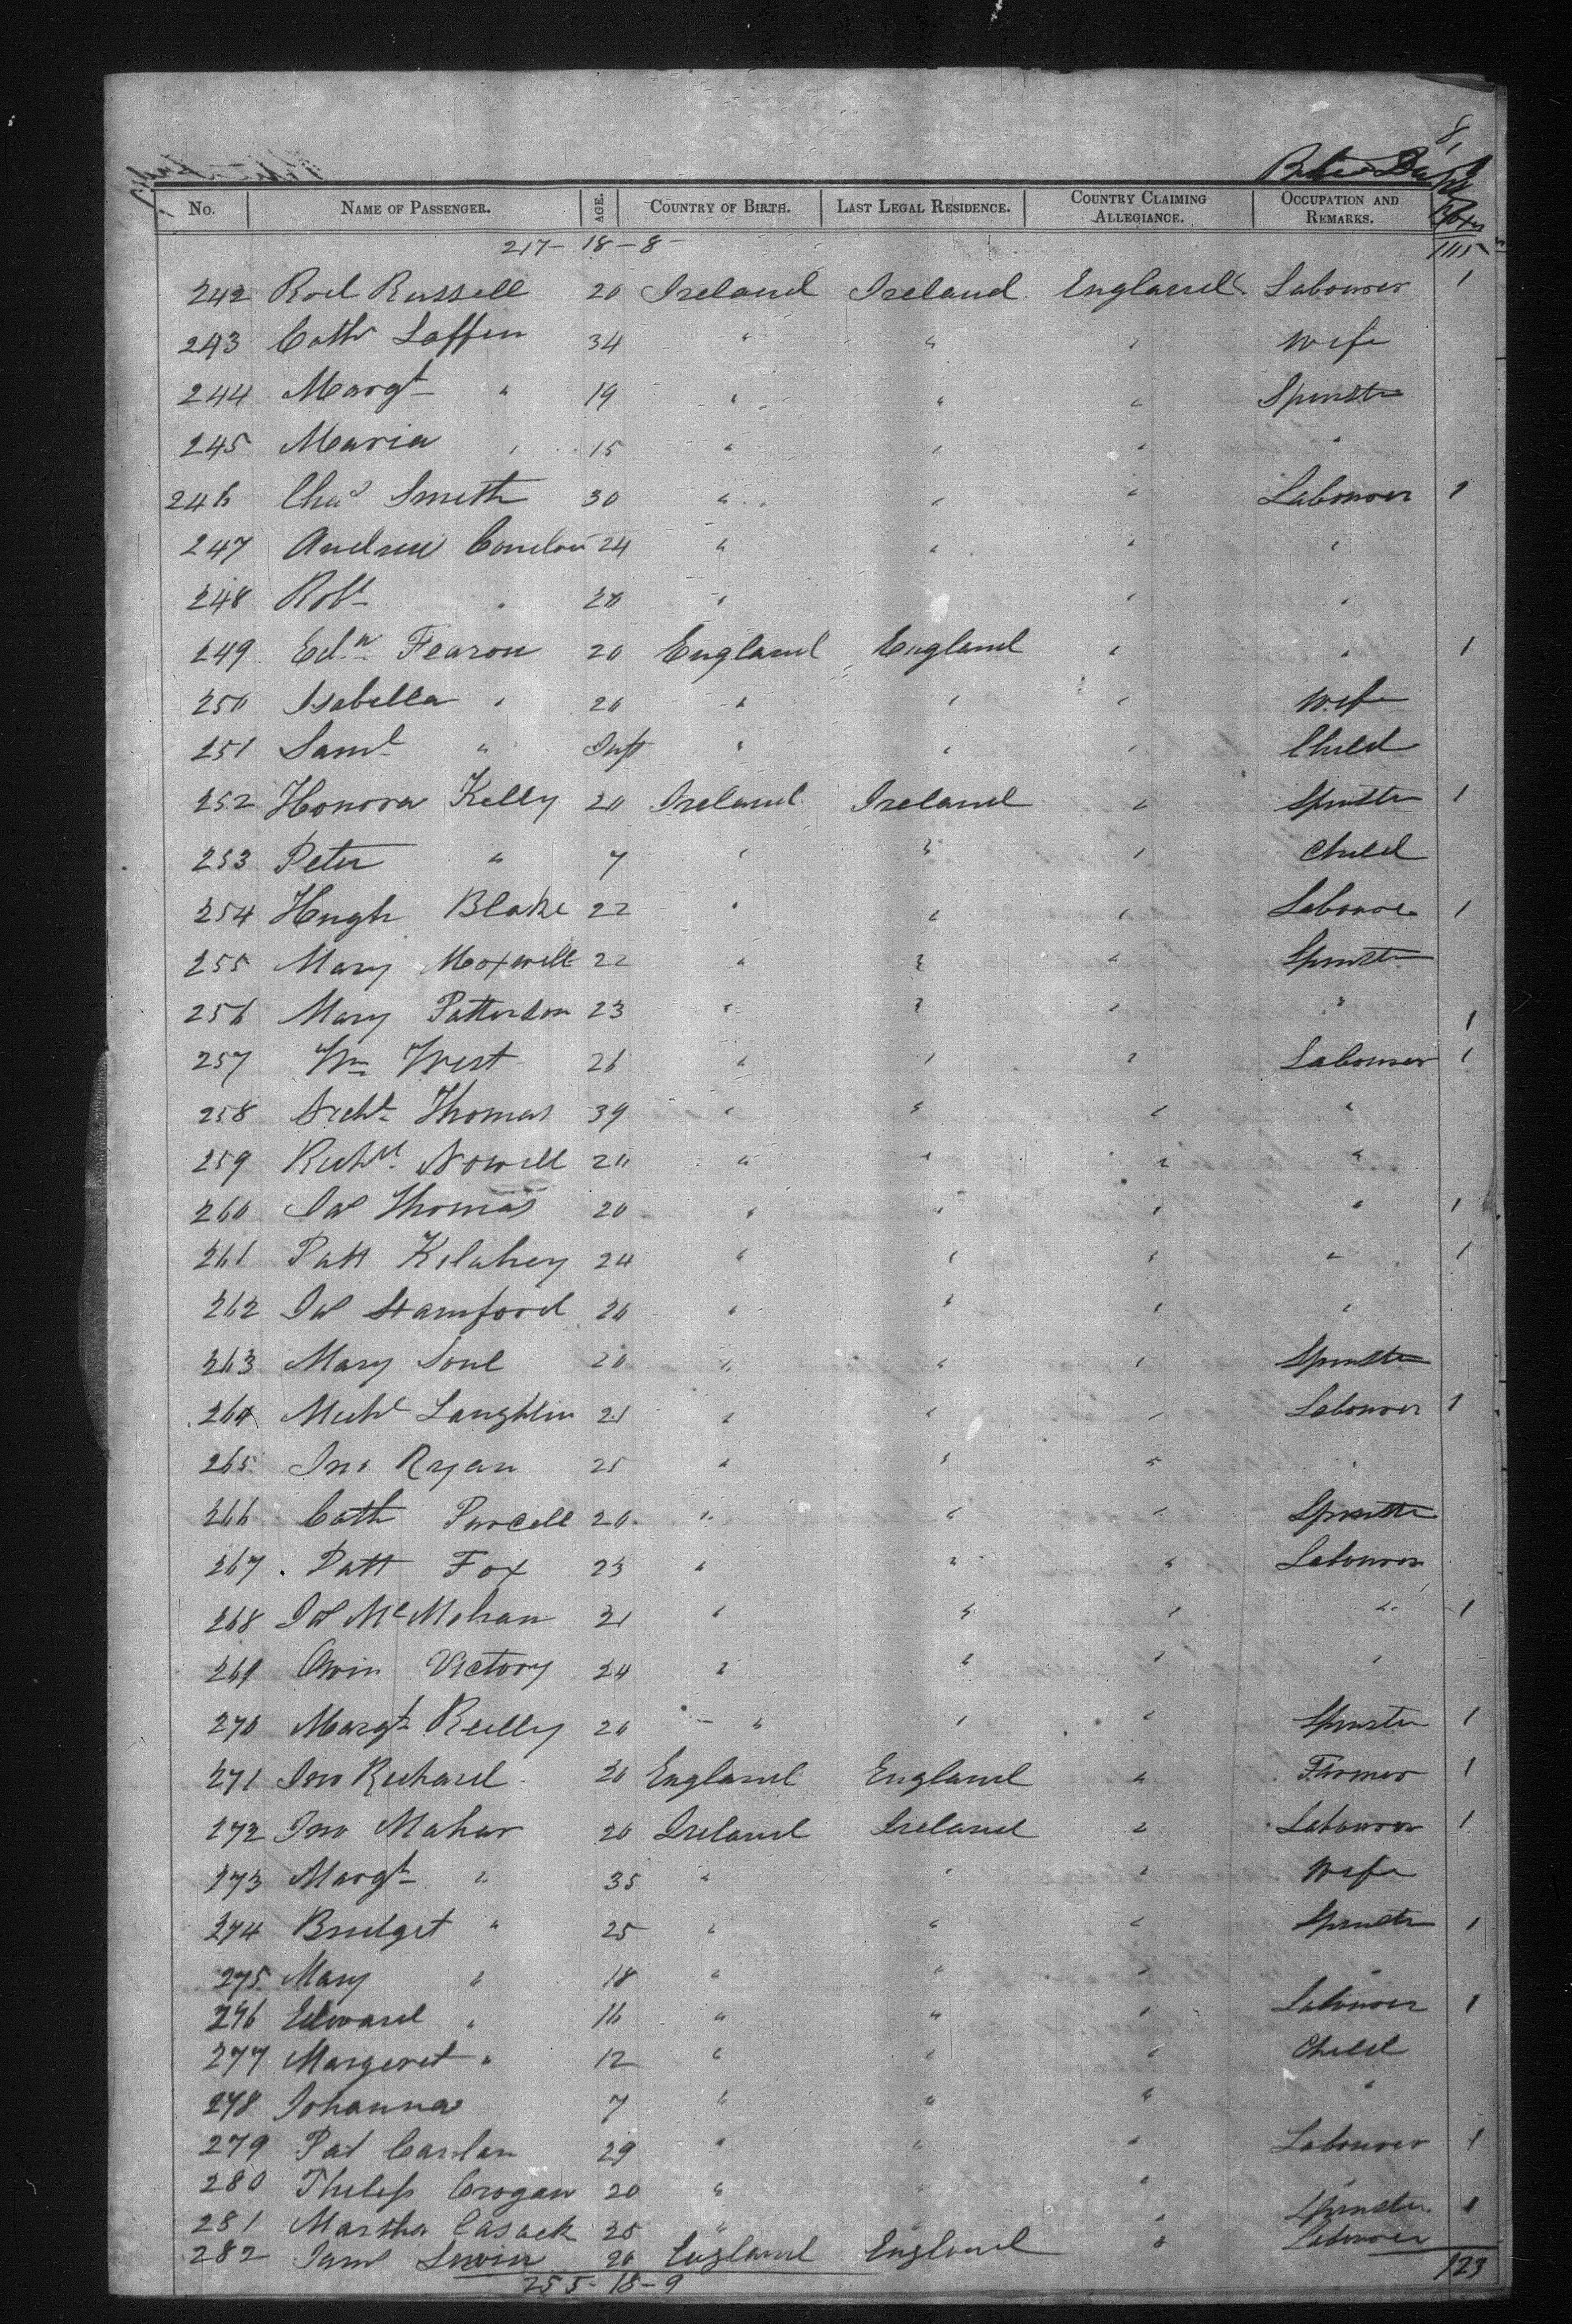 8,
No. NAME OF PASSENGER. AGE. COUNTRY OF BIRTH. LAST LEGAL RESIDENCE. COUNTRY CLAIMING ALLEGIANCE. OCCUPATION AND REMARKS.
217 - 18 - 8 - 115
242 Rod Russell 20 Ireland Ireland England Labourer 1
243 Cath Laffen 34 " " " Wife
244 Margt " 19 " " " Spinster
245 Maria " 15 " " " "
246 Chas Smith 30 " " " Labourer 1
247 Andrew Condon 24 " " " "
248 Robt " 20 " " "
249 Edw Fearon 20 England England " " 1
250 Isabella " 20 " " " Wife
251 Saml " Inft " " " Child
252 Honora Kelly 20 Ireland Ireland " Spinster 1
253 Peter " 7 " " " Child
254 Hugh Blake 22 " " " Labourer 1
255 Mary Maxwell 22 " " " Spinster
256 Mary Patterson 23 " " " " 1
257 Wm West 26 " " " Labourer 1
258 Archt Thomas 39 " " " "
259 Richd Nowell 20 " " " "
260 Jas Thomas 20 " " " " 1
261 Patt Kilahey 24 " " " " 1
262 Jas Stamford 20 " " " "
263 Mary Soul 20 " " " Spinster
264 Michl Laughlin 21 " " " Labourer 1
265 Jno Ryan 25 " " " "
266 Cath Purcell 20 " " " Spinster
267 Patt Fox 23 " " " Labourer
268 Jas McMahan 21 " " " " 1
269 Owin Victory 24 " " " "
270 Margt Reilly 20 " " " Spinster 1
271 Jno Richard 20 England England " Farmer 1
272 Jno Mahar 20 Ireland Ireland " Labourer 1
273 Margt " 35 " " " Wife
274 Bridget " 25 " " " Spinster 1
275 Mary " 18 " " " "
276 Edward " 16 " " " Labourer 1
277 Margeret " 12 " " " Child
278 Johanna 7 " " " "
279 Pat Carlan 29 " " " Labourer 1
280 Philip Crogan 20 " " " "
281 Martha Casack 25 " " " Spinster 1
282 Jams 20 England England " Labourer
255 - 18 - 9 123